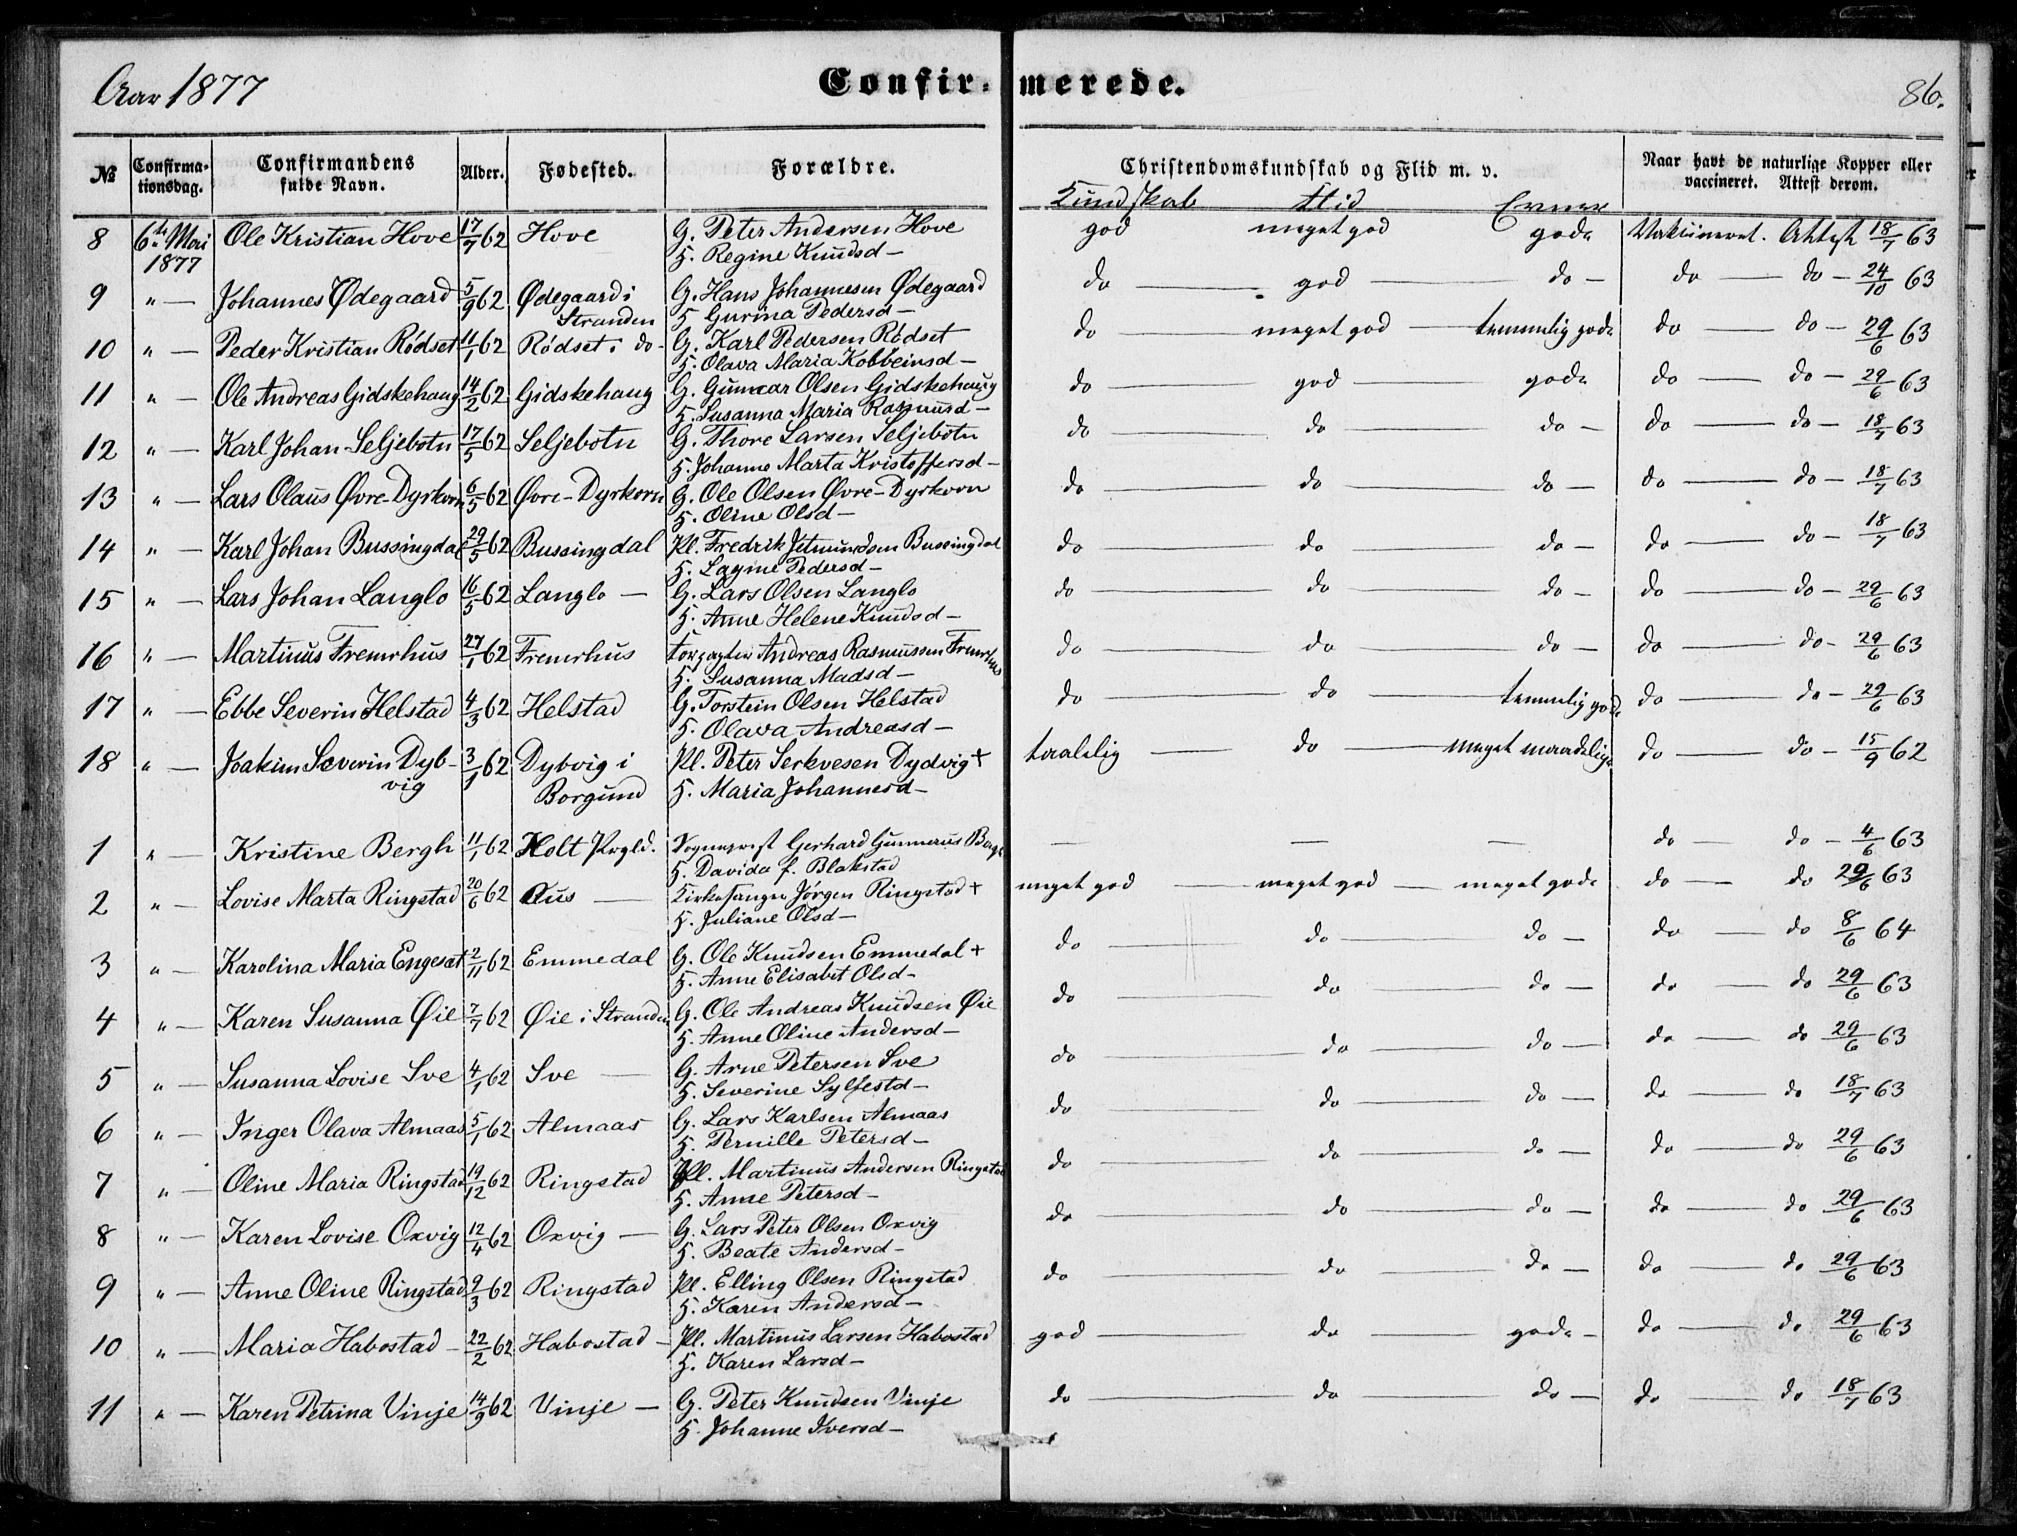 Aar 1877
Confir-merede.
86.
№ Confirma-tionsdag. Confirmandens fulde Navn. Alder. Fødested. Forældre. Christendomskundskab og Flid m. v. Naar havt de naturlige Kopper eller vaccineret. Attest derom.
Kundskab Flid Evner
8 6te Mai 1877 Ole Kristian Hove 17/7 62 Hove G. Peter Andersen Hove god meget god gode Vakcineret. Attest 18/7 63
H. Regine Knudsd—
9 " — Johannes Ødegaard 5/9 62 Ødegaard i Stranden G. Hans Johannesen Ødegaard do — god — do — do — do — 24/10 63
H. Gurina Pedersd—
10 " — Peder Kristian Rødset 11/1 62 Rødset i do- G. Karl Pedersen Rødset do — meget god — temmelig gode do — do — 29/6 63
H. Olava Maria Kobbeinsd—
11 " — Ole Andreas Gidskehaug 14/2 62 Gidskehaug G. Gunnar Olsen Gidskehaug do — god — gode do — do — 29/6 63
H. Susanna Maria Rasmusd—
12 " — Karl Johan Seljebotn 17/5 62 Seljebotn G. Thore Larsen Seljebotn do — do — do — do — do — 18/7 63
H. Johanne Marta Kristoffersd—
13 " — Lars Olaus Øvre-Dyrkorn 6/5 62 Øvre-Dyrkorn G. Ole Olsen Øvre-Dyrkorn do — do — do — do — do — 18/7 63
H. Oline Olsd—
14 " — Karl Johan Bussingdal 29/5 62 Bussingdal Pl. Fredrik Jetmundsen Bussingdal do — do — do — do — do — 18/7 63
H. Lagine Pedersd—
15 " — Lars Johan Langlo 16/5 62 Langlo — G. Lars Olsen Langlo do — do — do — do — do — 29/6 63
H. Anne Helene Knudsd—
16 " — Martinus Fremrhus 27/1 62 Fremrhus Forpagter Andreas Rasmussen Fremrhus do — do — do — do — do — 29/6 63
H. Susanna Madsd—
17 " — Ebbe Severin Helstad 4/3 62 Helstad G. Torstein Olsen Helstad do — do — temmelig gode do — do — 29/6 63
H. Olava Andreasd—
18 " — Joakim Severin Dybvig 3/1 62 Dybvig i Borgund Pl. Peter Serkvesen Dydvig + taalelig — do — meget maadelige do — do — 15/9 62
H. Maria Johannesd—
1 " — Kristine Bergh 11/1 62 Holt Prgld. Sogneprest Gerhard Gunnerus Bergh — — — do — do — 4/6 63
H. Davida f. Blakstad
2 " — Lovise Marta Ringstad 20/6 62 Aus — Kirkesanger Jørgen Ringstad + meget god — meget god — meget gode do — do 29/6 63
H. Juliane Olsd—
3 " — Karolina Maria Engeset 2/11 62 Emmedal G. Ole Knudsen Emmedal + do — do — do — do — do 8/6 64
H. Anne Elisabet Olsd—
4 " — Karen Susanna Øie 7/7 62 Øie i Stranden G. Ole Andreas Knudsen Øie do — do — do — do — do 29/6 63
H. Anne Oline Andersd—
5 " — Susanna Lovise Sve 4/1 62 Sve — G. Arne Petersen Sve do — do — do — do — do 29/6 63
H. Severine Sylfestd—
6 " — Inger Olava Almaas 5/1 62 Almaas G. Lars Karlsen Almaas do — do — do — do — do 18/7 63
H. Pernille Petersd—
7 " — Oline Maria Ringstad 19/12 62 Ringstad Pl. Martinus Andersen Ringstad do — do — do — do — do 29/6 63
H. Anne Petersd—
8 " — Karen Lovise Oxvig 12/4 62 Oxvig — G. Lars Peter Olsen Oxvig do — do — do — do — do 29/6 63
H. Beate Andersd—
9 " — Anne Oline Ringstad 9/3 62 Ringstad Pl. Elling Olsen Ringstad do — do — do — do — do 29/6 63
H. Karen Andersd—
10 " — Maria Habostad — 22/2 62 Habostad — Pl. Martinus Larsen Habostad god — do — gode — do — do 29/6 63
H. Karen Larsd—
11 " — Karen Petrina Vinje 14/9 62 Vinje — G. Peter Knudsen Vinje do — do — do — do — do 18/7 63
H. Johanne Iversd—